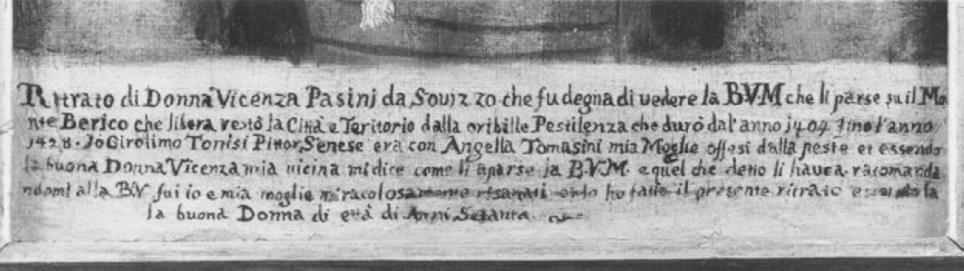 Ritrato di Donna Vicenza Pasini da Sovizzo che fu degna di vedere la BVM che li parse su il Mo
nte Berico che libera restò la Città e Teritorio dalla oribille Pestilenza che durò dal' anno 1404 fino l'anno
1428. Io Girolimo Tonisi Pitor, Senese era con Angella Tomasini mia Moglie offesi dalla peste et essendo
la buona Donna Vicenza mia vicina mi dice come li aparse la B.V.M. e quel che detto li havea. racomanda
ndomi alla B.V fui io e mia moglie miracolosamente risanati ho fatto il presente ritraio la
la buona Donna di età di Anni Setanta.